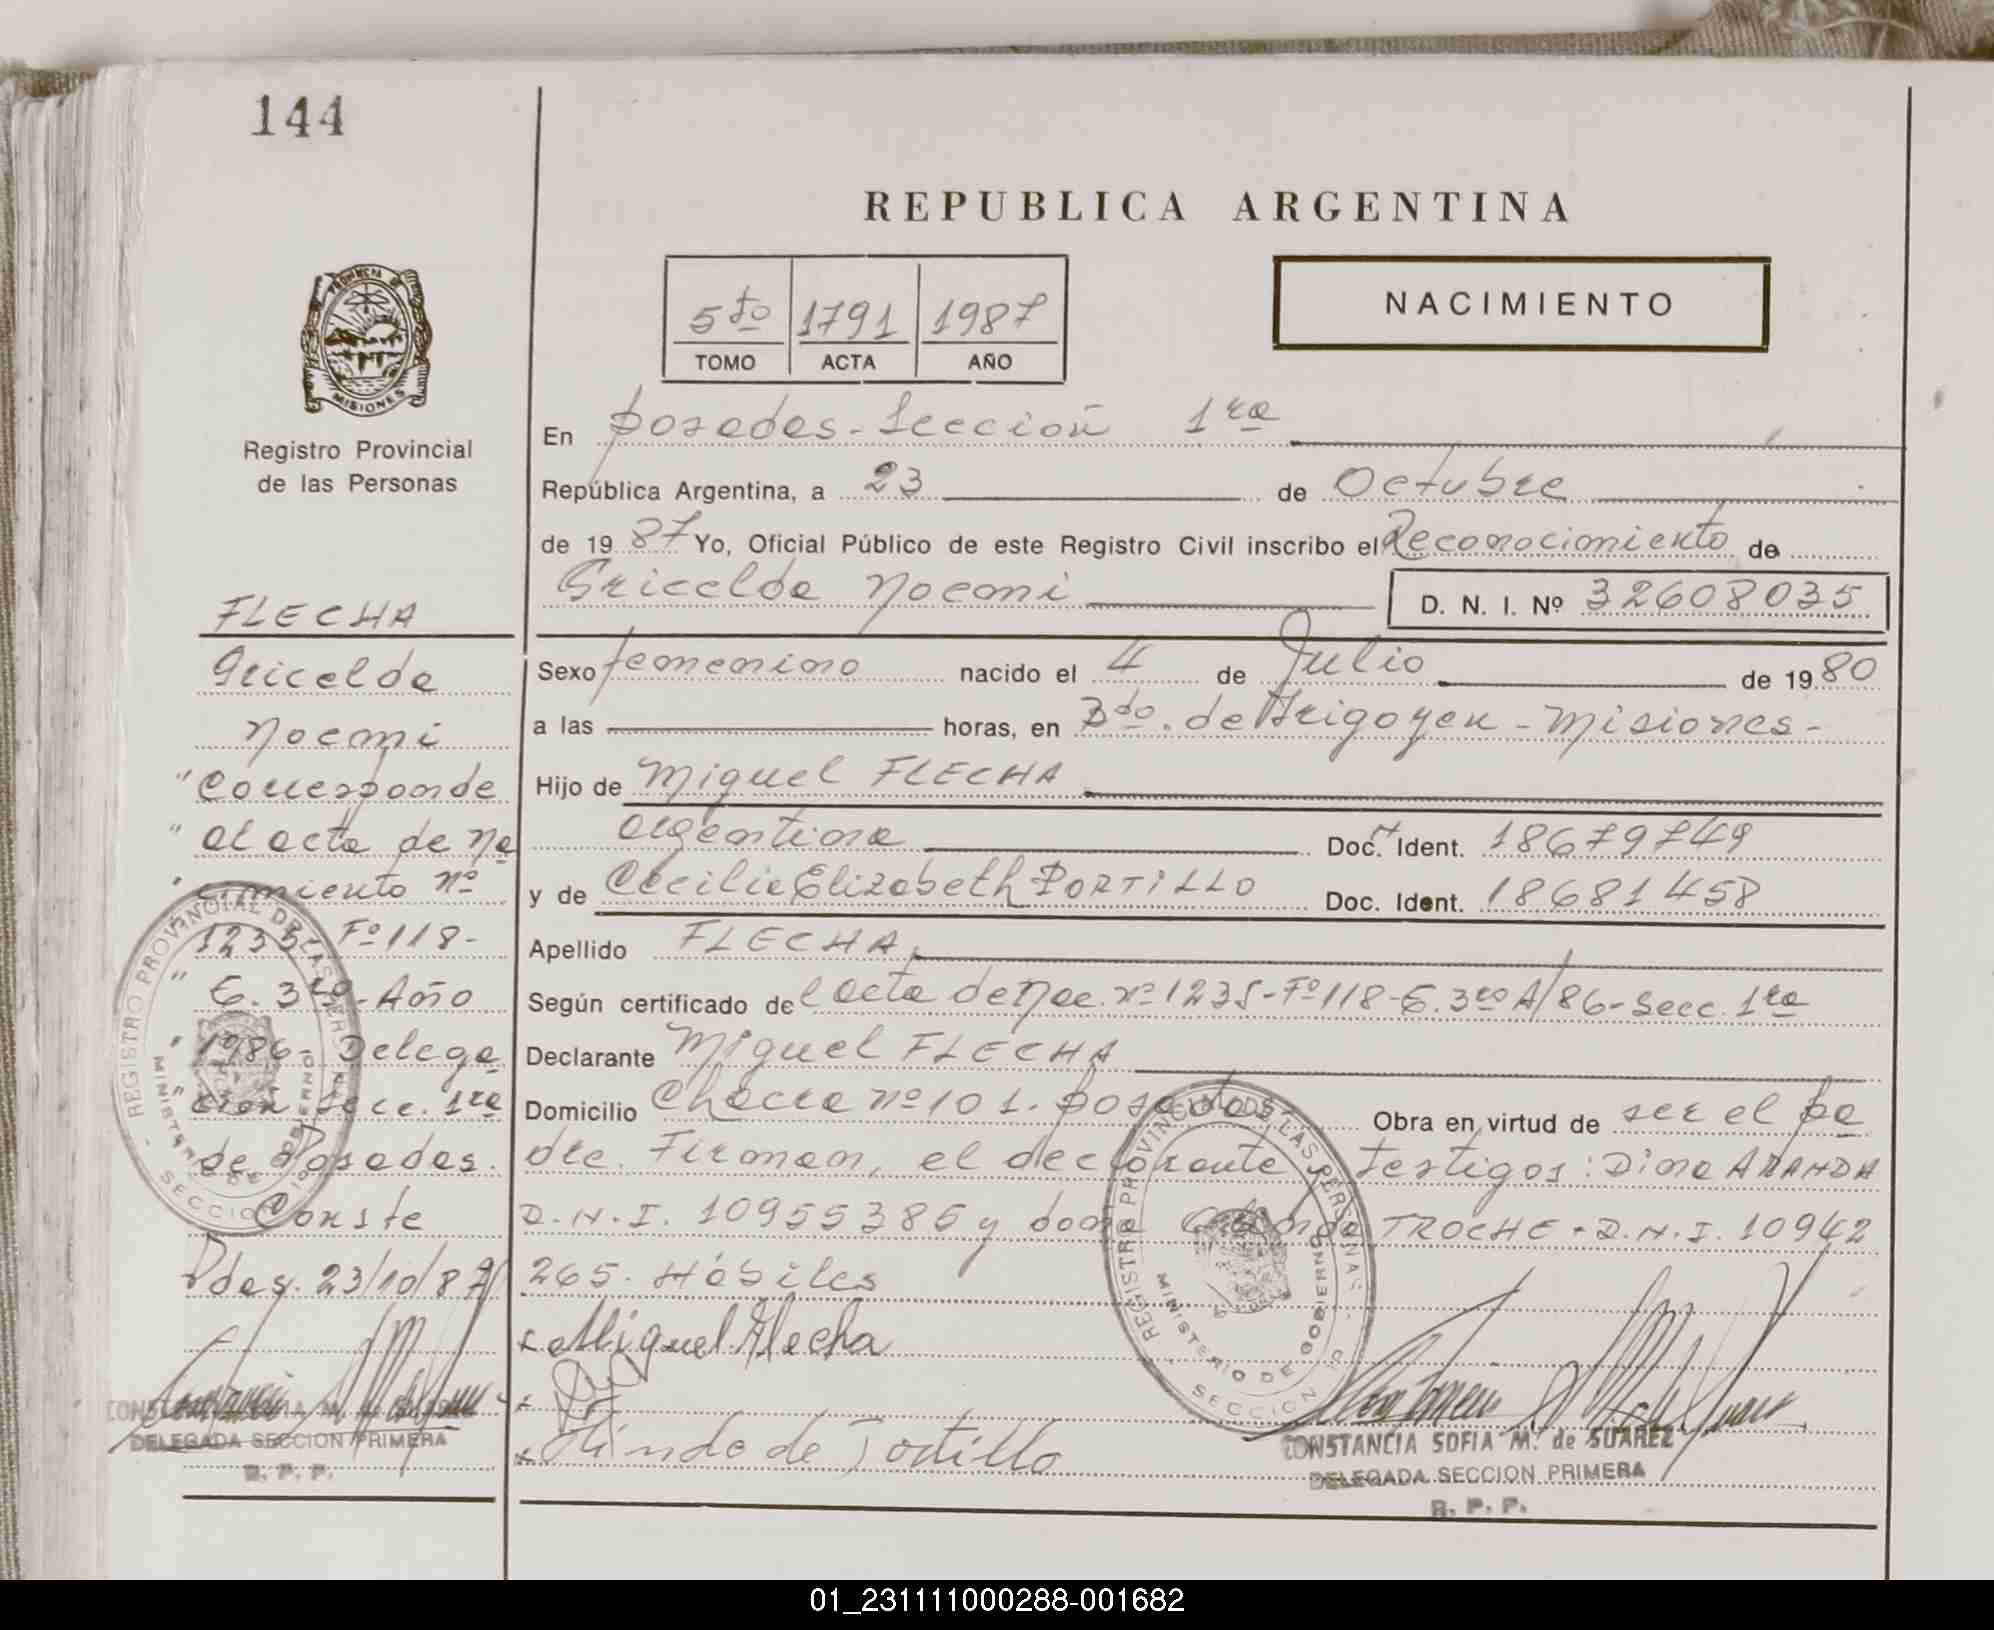 144
REPUBLICA ARGENTINA
5to 1791 1987
TOMO ACTA AÑO
NACIMIENTO
PROVINCIA DE
MISIONES
Registro Provincial
de las Personas
En Posadas - Sección 1ra
República Argentina, a 23 de Octubre
de 19 87 Yo, Oficial Público de este Registro Civil inscribo el Reconocimiento de
Gricelda Noemi D. N. I. Nº 32608035
Sexo femenino nacido el 4 de Julio de 19 80
a las horas, en Bdo. de Irigoyen - Misiones -
Hijo de Miguel FLECHA
argentina Doc. Ident. 18679749
y de Cecilia Elizabeth PORTILLO Doc. Ident. 18681458
Apellido FLECHA
Según certificado del acta de Nac. nº 1235 - Fº 118 - T. 3ro A/86 - Secc. 1ra
Declarante Miguel FLECHA
Domicilio Chacra nº 101. Posadas Obra en virtud de ser el pa
dre. Firman, el declarante y testigos: Dina ARANDA
D.N.I. 10955386 y doña TROCHE - D.N.I. 10942
265. Hábiles
FLECHA
Gricelda
Noemi
"Corresponde
" al acta de Na
" cimiento nº
1235 - Fº 118 -
" T. 3ro - Año
" 1986 - Delega
" ción Secc. 1ra
de Posadas.
Conste
Pdas. 23/10/87
CONSTANCIA
DELEGADA SECCION PRIMERA
R. P. P.
x Miguel Flecha
x
x
REGISTRO PROVINCIAL DE LAS PERSONAS
MINISTERIO DE GOBIERNO
SECCION
REGISTRO PROVINCIAL DE LAS PERSONAS
MINISTERIO DE GOBIERNO
SECCION
CONSTANCIA SOFIA M. de SUAREZ
DELEGADA SECCION PRIMERA
R. P. P.
01_231111000288-001682